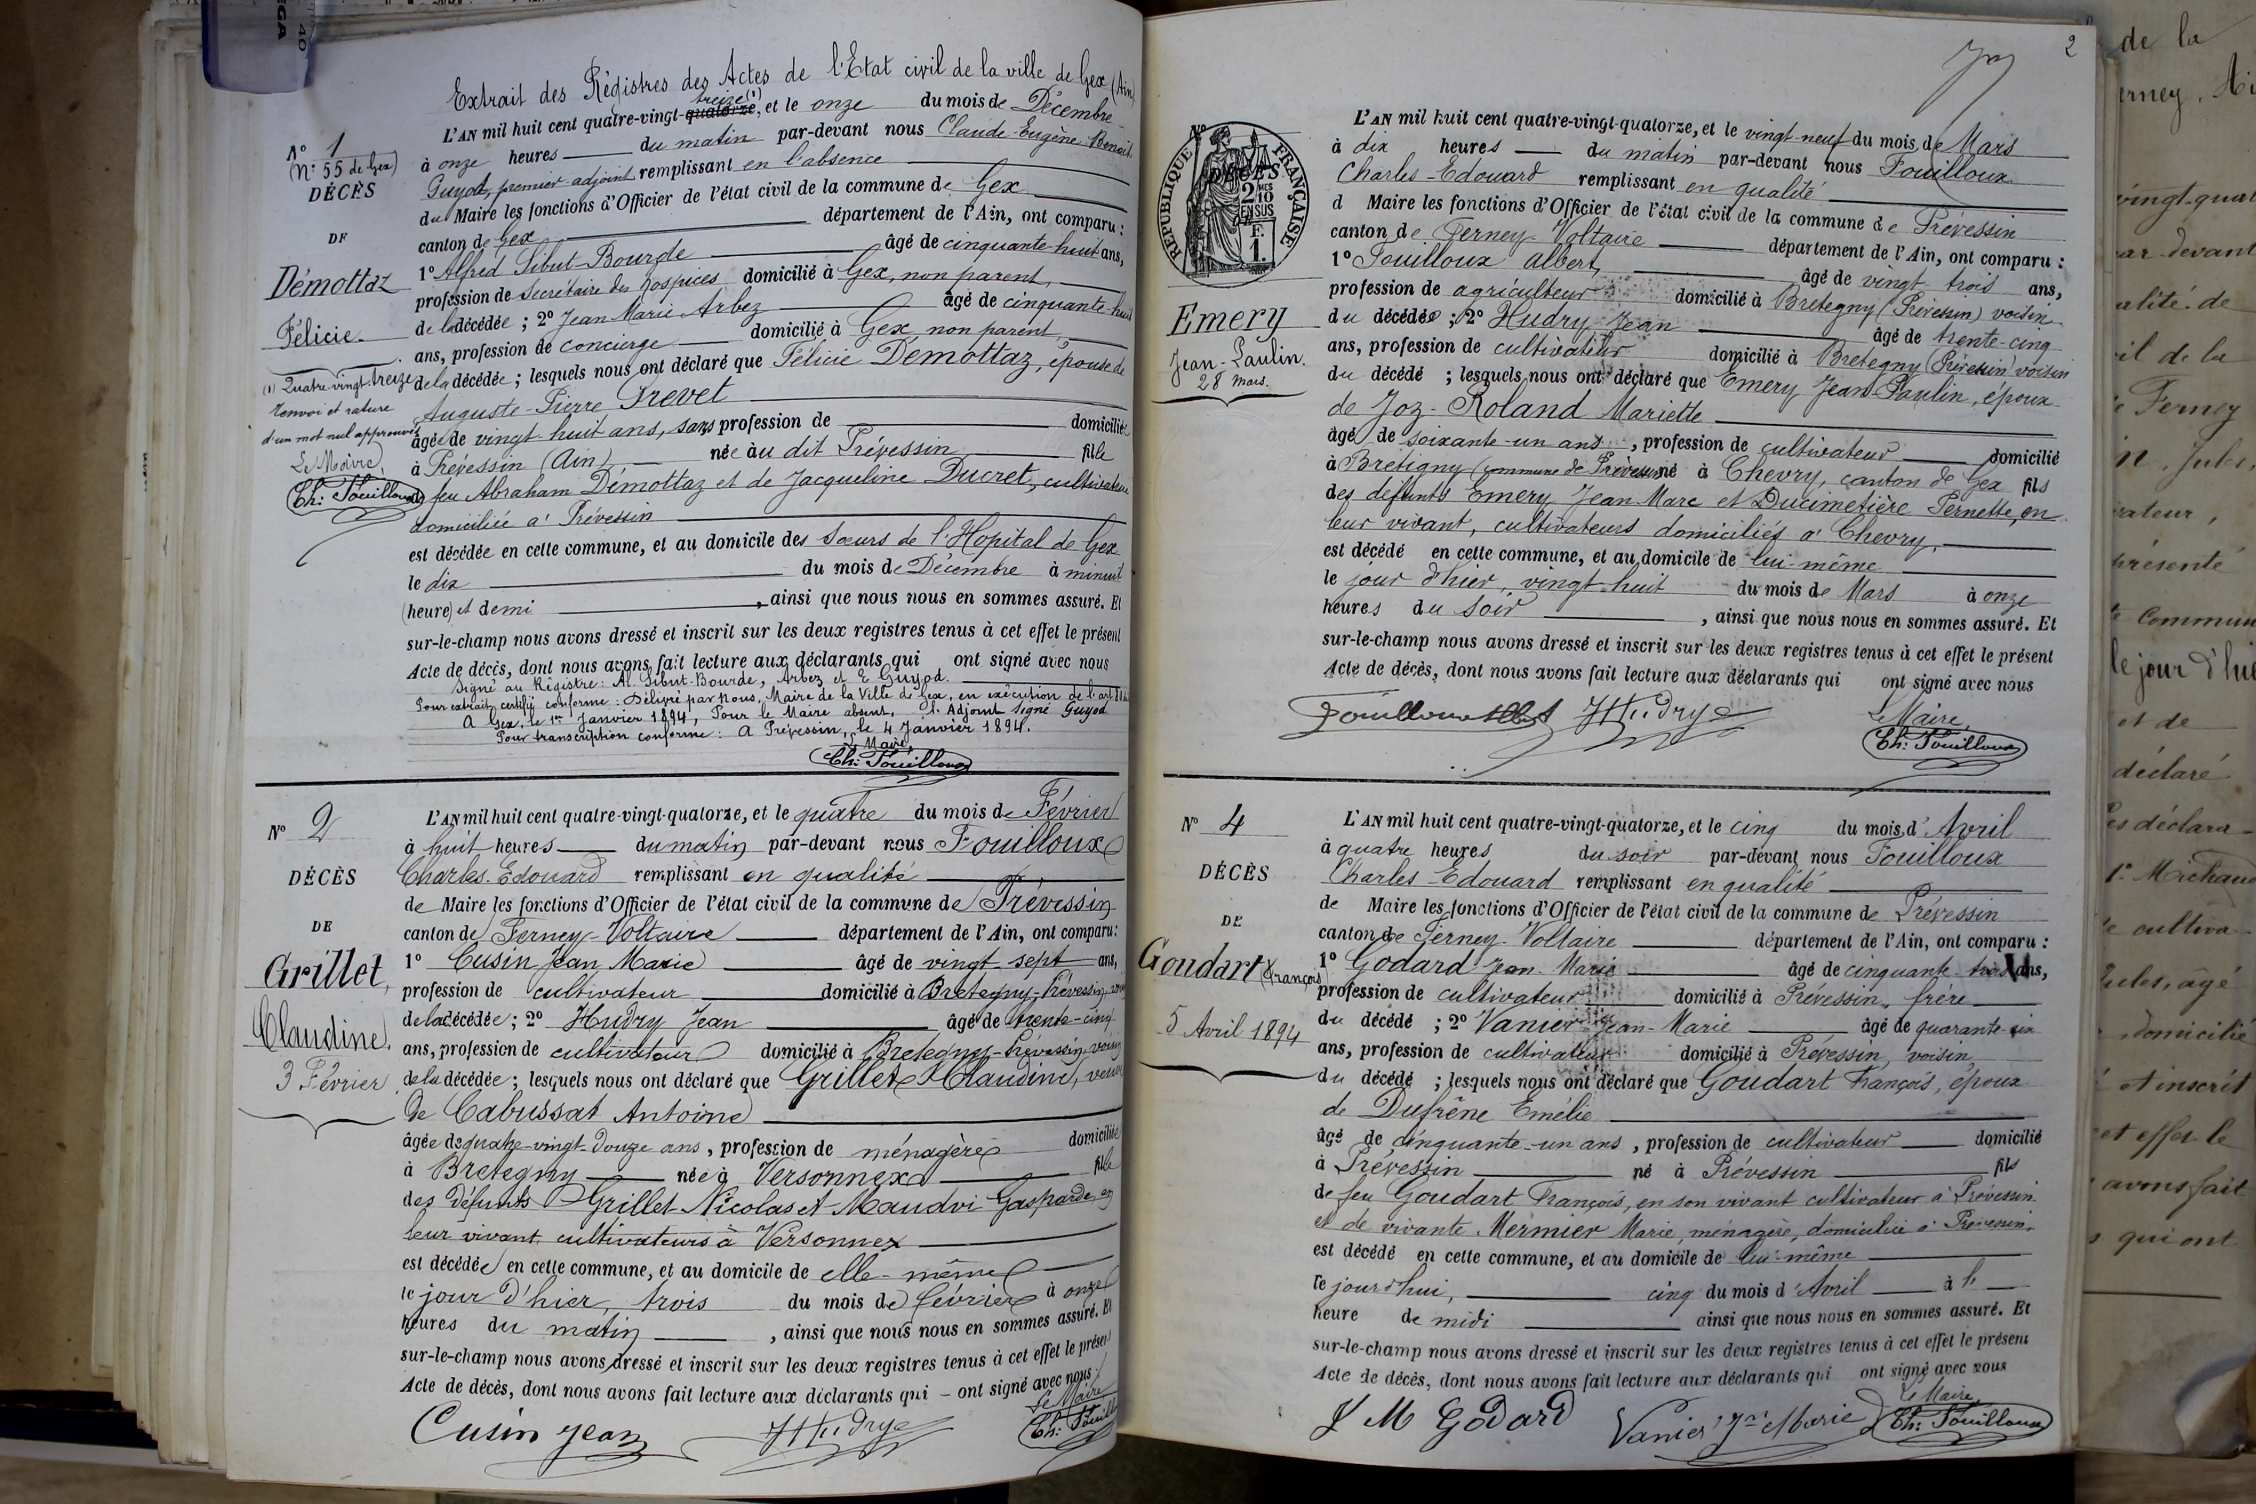 Extrait des Régistres des Actes de l'Etat civil de la ville de Gex (Ain)
N° 1
(N° 55 de Gex)
DÉCÈS
DE
Démottaz
Félicie.
(1) Quatre-vingt-treize
renvoi et rature
d'un mot nul approuvés
Le Maire,
Ch: Fouilloux
L'AN mil huit cent quatre-vingt-quatorze, treize (1) et le onze du mois de Décembre
à onze heures du matin par-devant nous Claude-Eugène-Benoit
Guyot, premier adjoint remplissant en l'absence
du Maire les fonctions d'Officier de l'état civil de la commune de Gex
canton de Gex département de l'Ain, ont comparu :
1° Alfred Sibut-Bourde âgé de cinquante-huit ans,
profession de Secrétaire des hospices domicilié à Gex, non parent,
de la décédée ; 2° Jean Marie Arbez âgé de cinquante-huit
ans, profession de concierge domicilié à Gex non parent,
de la décédée ; lesquels nous ont déclaré que Félicie Démottaz, épouse de
Auguste-Pierre Prevet
âgée de vingt-huit ans, sans profession de domiciliée
à Prévessin (Ain) née àu dit Prévessin fille
de feu Abraham Démottaz et de Jacqueline Ducret, cultivateurs
domiciliée à Prévessin
est décédée en cette commune, et au domicile des Sœurs de l'Hopital de Gex
le dix du mois de Décembre à minuit
(heure) et demi , ainsi que nous nous en sommes assuré. Et
sur-le-champ nous avons dressé et inscrit sur les deux registres tenus à cet effet le présent
Acte de décès, dont nous avons fait lecture aux déclarants qui ont signé avec nous
Signé au Régistre: Al. Sibut-Bourde, Arbez et E Guyod.
Pour extrait certifié conforme: Délivré par nous, Maire de la Ville de Gex, en exécution de l'art
A Gex, le 1er Janvier 1894, Pour le Maire absent, l'Adjoint signé Guyod
Pour transcription conforme: A Prévessin, le 4 Janvier 1894.
Le Maire,
Ch: Fouilloux
N° 2
DÉCÈS
DE
Grillet,
Claudine.
3 Février
L'AN mil huit cent quatre-vingt-quatorze, et le quatre du mois de Février
à huit heures du matin par-devant nous Fouilloux
Charles-Edouard remplissant en qualité
de Maire les fonctions d'Officier de l'état civil de la commune de Prévessin
canton de Ferney-Voltaire département de l'Ain, ont comparu:
1° Cusin Jean Marie âgé de vingt-sept ans,
profession de cultivateur domicilié à Bretegny-Prévessin, voisin
de la décédée; 2° Hudry Jean âgé de trente-cinq
ans, profession de cultivateur domicilié à Bretegny-Prévessin, voisin
de la décédée; lesquels nous ont déclaré que Grillet Claudine, veuve
de Cabussat Antoine
âgée de quatre-vingt-douze ans, profession de ménagère domiciliée
à Bretegny née à Versonnex fille
des défunts Grillet Nicolas et Maudvi Gasparde, en
leur vivant cultivateurs à Versonnex
est décédée en cette commune, et au domicile de elle-même
le jour d'hier, trois du mois de février à onze
heures du matin , ainsi que nous nous en sommes assuré. Et
sur-le-champ nous avons dressé et inscrit sur les deux registres tenus à cet effet le présent
Acte de décès, dont nous avons fait lecture aux déclarants qui - ont signé avec nous
Le Maire
Cusin Jean
JHudry
Ch: Fouilloux
2
N°
DÉCÈS
RÉPUBLIQUE FRANÇAISE
2 MES
10
EN SUS
F.
1.
Emery
Jean-Paulin.
28 Mars.
L'AN mil huit cent quatre-vingt-quatorze, et le vingt-neuf du mois de Mars
à dix heures du matin par-devant nous Fouilloux
Charles-Edouard remplissant en qualité
d Maire les fonctions d'Officier de l'état civil de la commune de Prévessin
canton de Ferney-Voltaire département de l'Ain, ont comparu :
1° Fouilloux Albert, âgé de vingt-trois ans,
profession de agriculteur domicilié à Bretegny (Prévessin) voisin
du décédé ; 2° Hudry Jean âgé de trente-cinq
ans, profession de cultivateur domicilié à Bretegny (Prévessin) voisin
du décédé ; lesquels nous ont déclaré que Emery Jean-Paulin, époux
de Joz-Roland Mariette
âgé de soixante-un ans , profession de cultivateur domicilié
à Brétigny (commune de Prévessin) né à Chevry, canton de Gex fils
des défunts Emery Jean-Marc et Ducimetière Pernette, en
leur vivant, cultivateurs domiciliés à Chevry,
est décédé en cette commune, et au domicile de lui-même
le jour d'hier, vingt-huit du mois de Mars à onze
heures du soir , ainsi que nous nous en sommes assuré. Et
sur-le-champ nous avons dressé et inscrit sur les deux registres tenus à cet effet le présent
Acte de décès, dont nous avons fait lecture aux déclarants qui ont signé avec nous
Fouilloux Albert
JHudry
Le Maire,
Ch: Fouilloux
N° 4
DÉCÈS
DE
Goudart François
5 Avril 1894
L'AN mil huit cent quatre-vingt-quatorze, et le cinq du mois d'Avril
à quatre heures du soir par-devant nous Fouilloux
Charles-Edouard remplissant en qualité
de Maire les fonctions d'Officier de l'état civil de la commune de Prévessin
canton de Ferney-Voltaire département de l'Ain, ont comparu :
1° Godard Jean-Marie âgé de cinquante-trois ans,
profession de cultivateur domicilié à Prévessin, frère
du décédé ; 2° Vanier Jean-Marie âgé de quarante-six
ans, profession de cultivateur domicilié à Prévessin, voisin
du décédé ; lesquels nous ont déclaré que Goudart François, époux
de Dufrêne Emélie
âgé de cinquante-un ans , profession de cultivateur domicilié
à Prévessin né à Prévessin fils
de feu Goudart François, en son vivant cultivateur à Prévessin
et de vivante Mermier Marie, ménagère, domiciliée à Prévessin,
est décédé en cette commune, et au domicile de lui-même
le jourd'hui, cinq du mois d'Avril à l
heure de midi ainsi que nous nous en sommes assuré. Et
sur-le-champ nous avons dressé et inscrit sur les deux registres tenus à cet effet le présent
Acte de décès, dont nous avons fait lecture aux déclarants qui ont signé avec nous
Le Maire
J M Godard
Vanier Jn Marie
Ch: Fouilloux
de la
erney, Ai
vingt-quat
par-devant
qualité de
il de la
de Ferney
n, Jules,
vateur,
présenté
commun
le jour d'hie
et de
déclaré
les déclara-
1° Michaud
de cultiva-
Jules, âgé
domicilié
et inscrit
cet effet le
avons fait
s qui ont